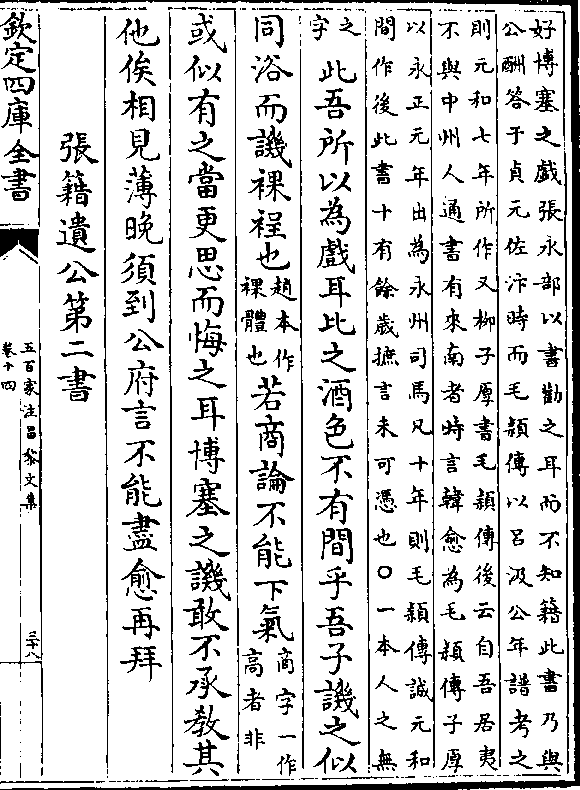 好博塞之戲張水部以書勸之耳而不知籍此書乃與
公酬答于貞元佐汴時而毛頴傳以呂汲公年譜考之
則元和七年所作又柳子厚書毛頴傳後云自吾居夷
不與中州人通書有來南者時言韓愈為毛頴傳子厚
以永正元年出為永州司馬凡十年則毛頴傳誠元和
間作後此書十有餘歲摭言未可憑也○一本人之無
之字
此吾所以為戲耳比之酒色不有間乎吾子譏之似
同浴而譏裸裎也趙本作裸體也若商論不能下氣商字一作高者非
或似有之當更思而悔之耳博塞之譏敢不承教其
他俟相見薄晚須到公府言不能盡愈再拜
張籍遺公第二書
欽定四庫全書
五百家注昌黎文集
卷十四
三十八